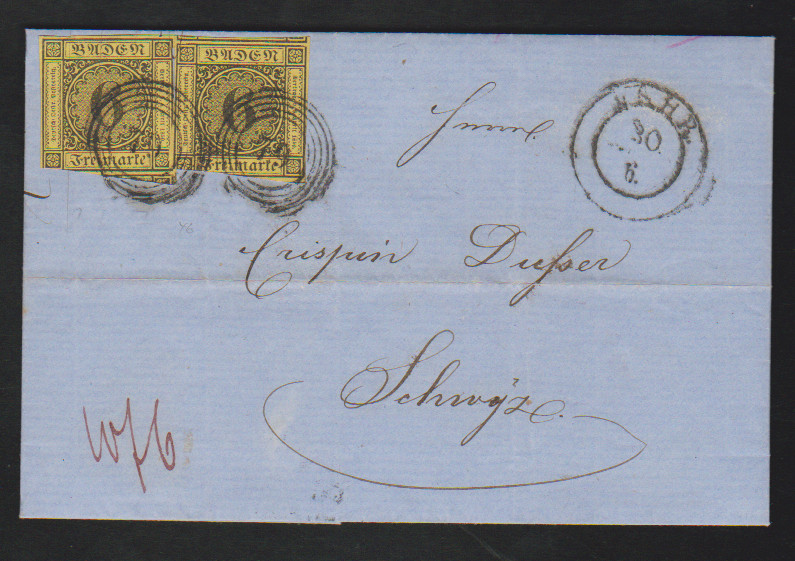 BADEN
6
Freimarke
BADEN
6
Freimarke
LAHR.
30.
6.
Herrn
Crispin Dusser
Schwÿz.